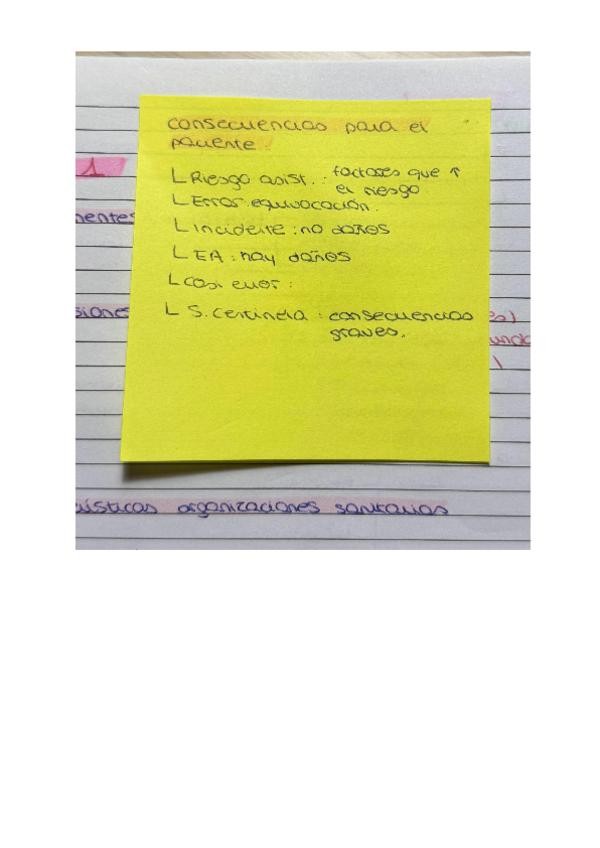 consecuencias para el
paciente:
1
└ Riesgo asist. : factores que ↑
el riesgo
└ Error: equivocación.
mentes
└ Incidente : no daños
└ EA : hay daños
└ casi error :
siones
└ S. centinela : consecuencias
graves.
ísticas organizaciones sanitarias